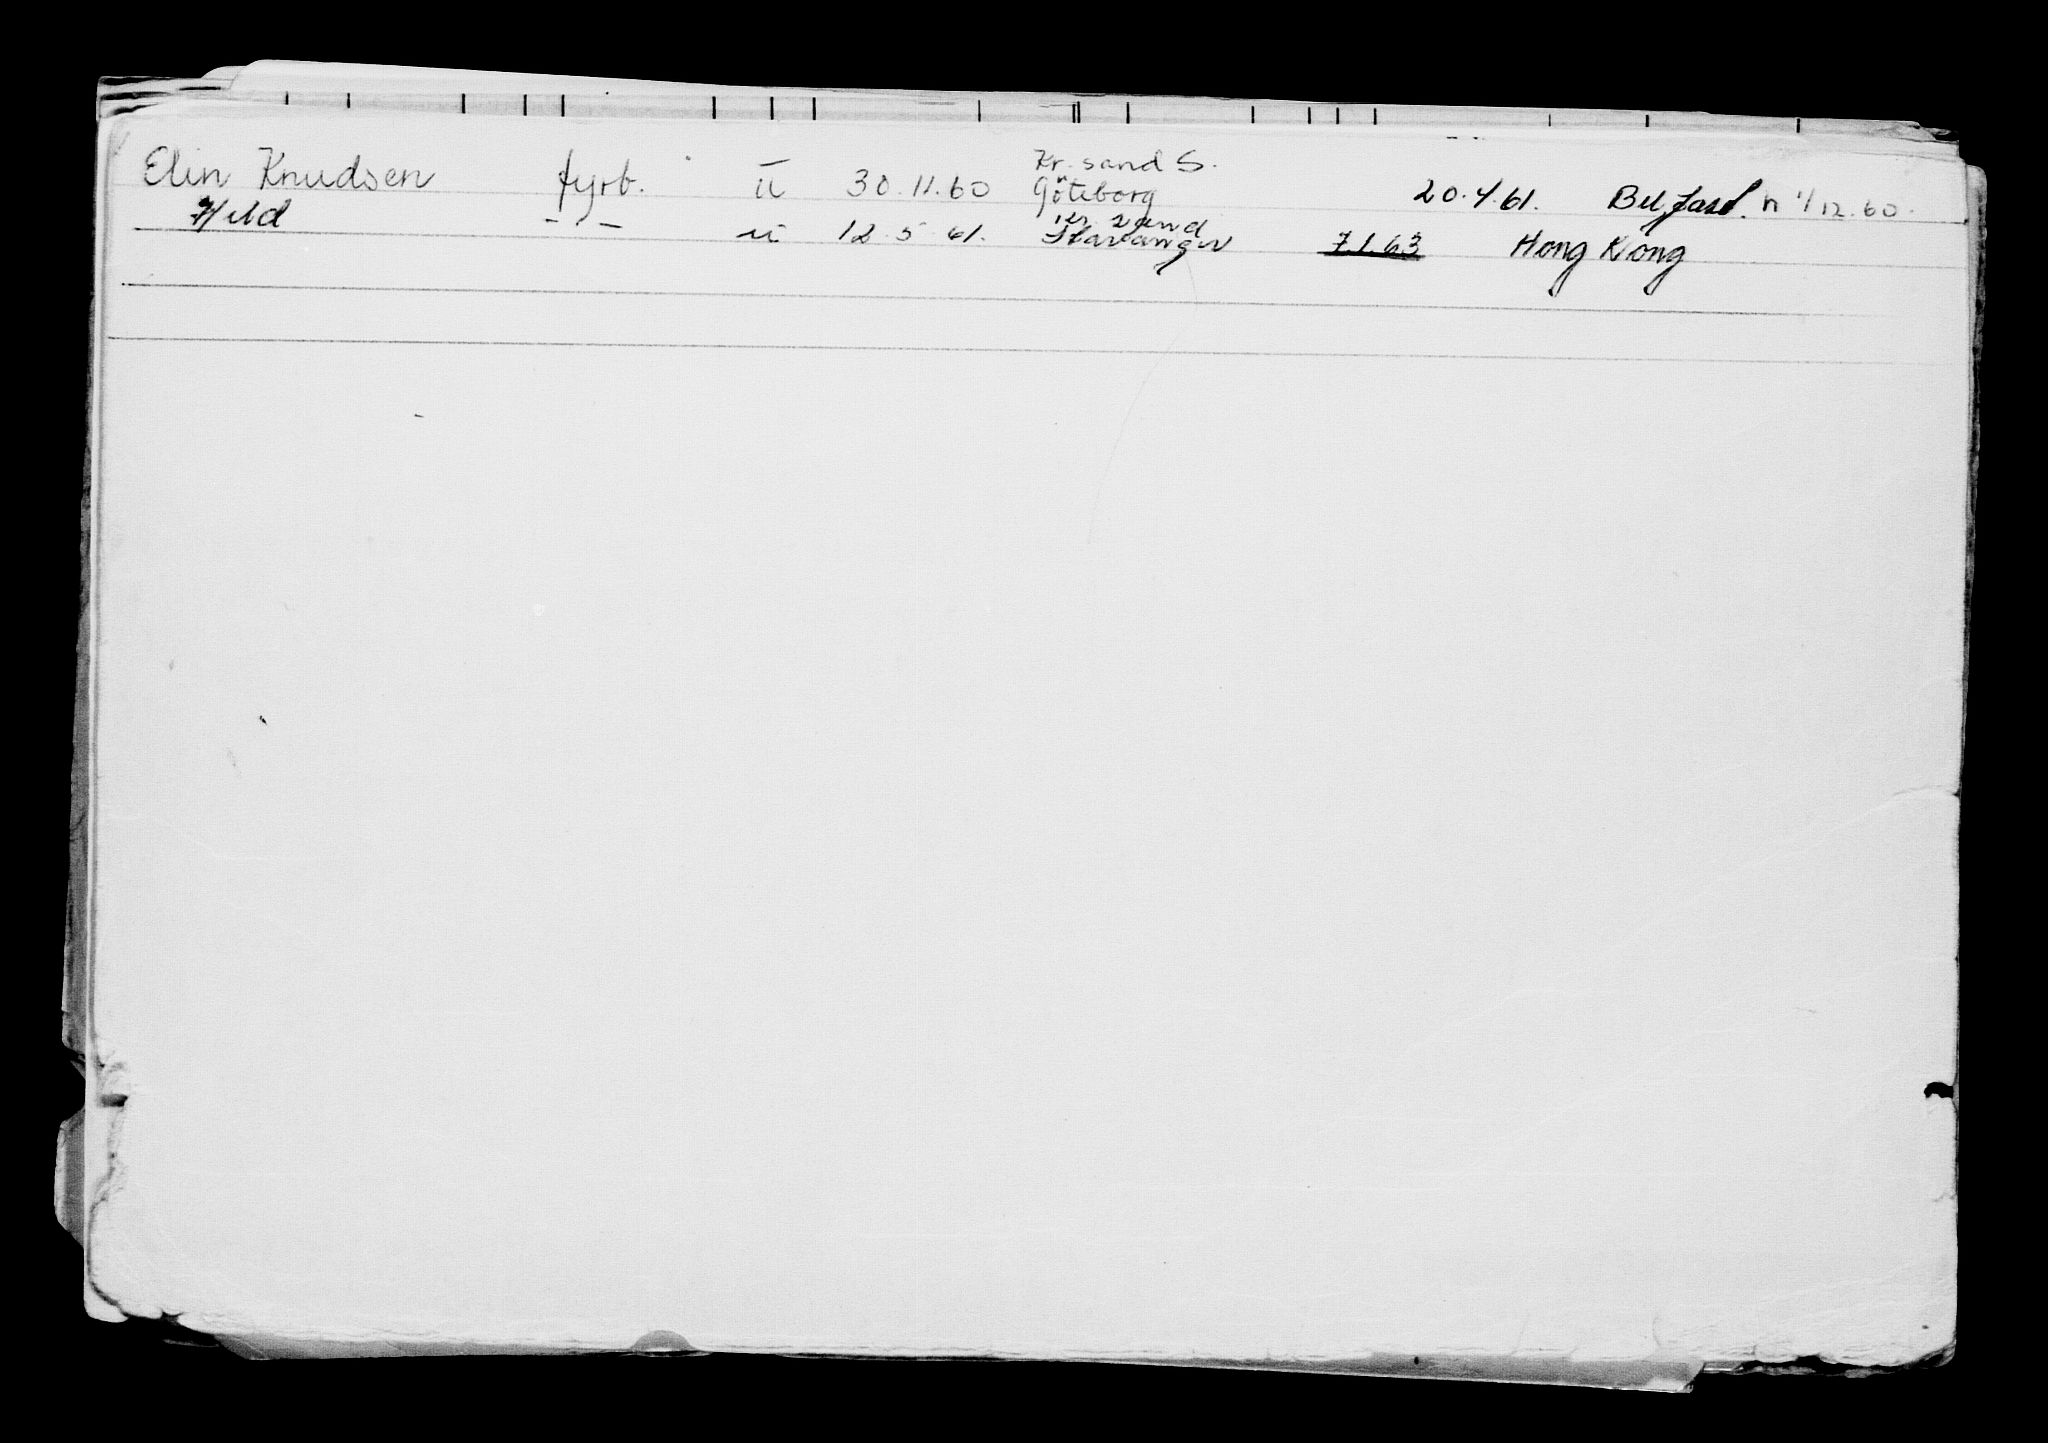 Elin Knudsen fyrb. u 30.11.60 Kr. sand S. Göteborg 20.4.61. Belfast. n 1/12.60.
Hild - " - u 12.5.61. Kr. sand Stavanger 7.1.63 Hong Kong